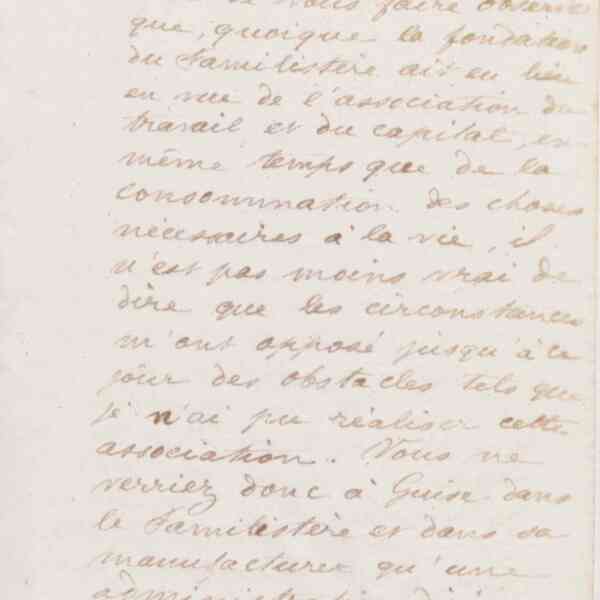 de vous faire observer
que, quoique la fondation
du Familistère ait eu lieu
en vue de l'association du
travail et du capital, en
même temps que de la
consommation des choses
nécessaires à la vie, il
n'est pas moins vrai de
dire que les circonstances
m'ont opposé jusqu'à ce
jour des obstacles tels que
je n'ai pu réaliser cette
association. Vous ne
verriez donc à Guise dans
le Familistère et dans sa
manufacture qu'une
administration